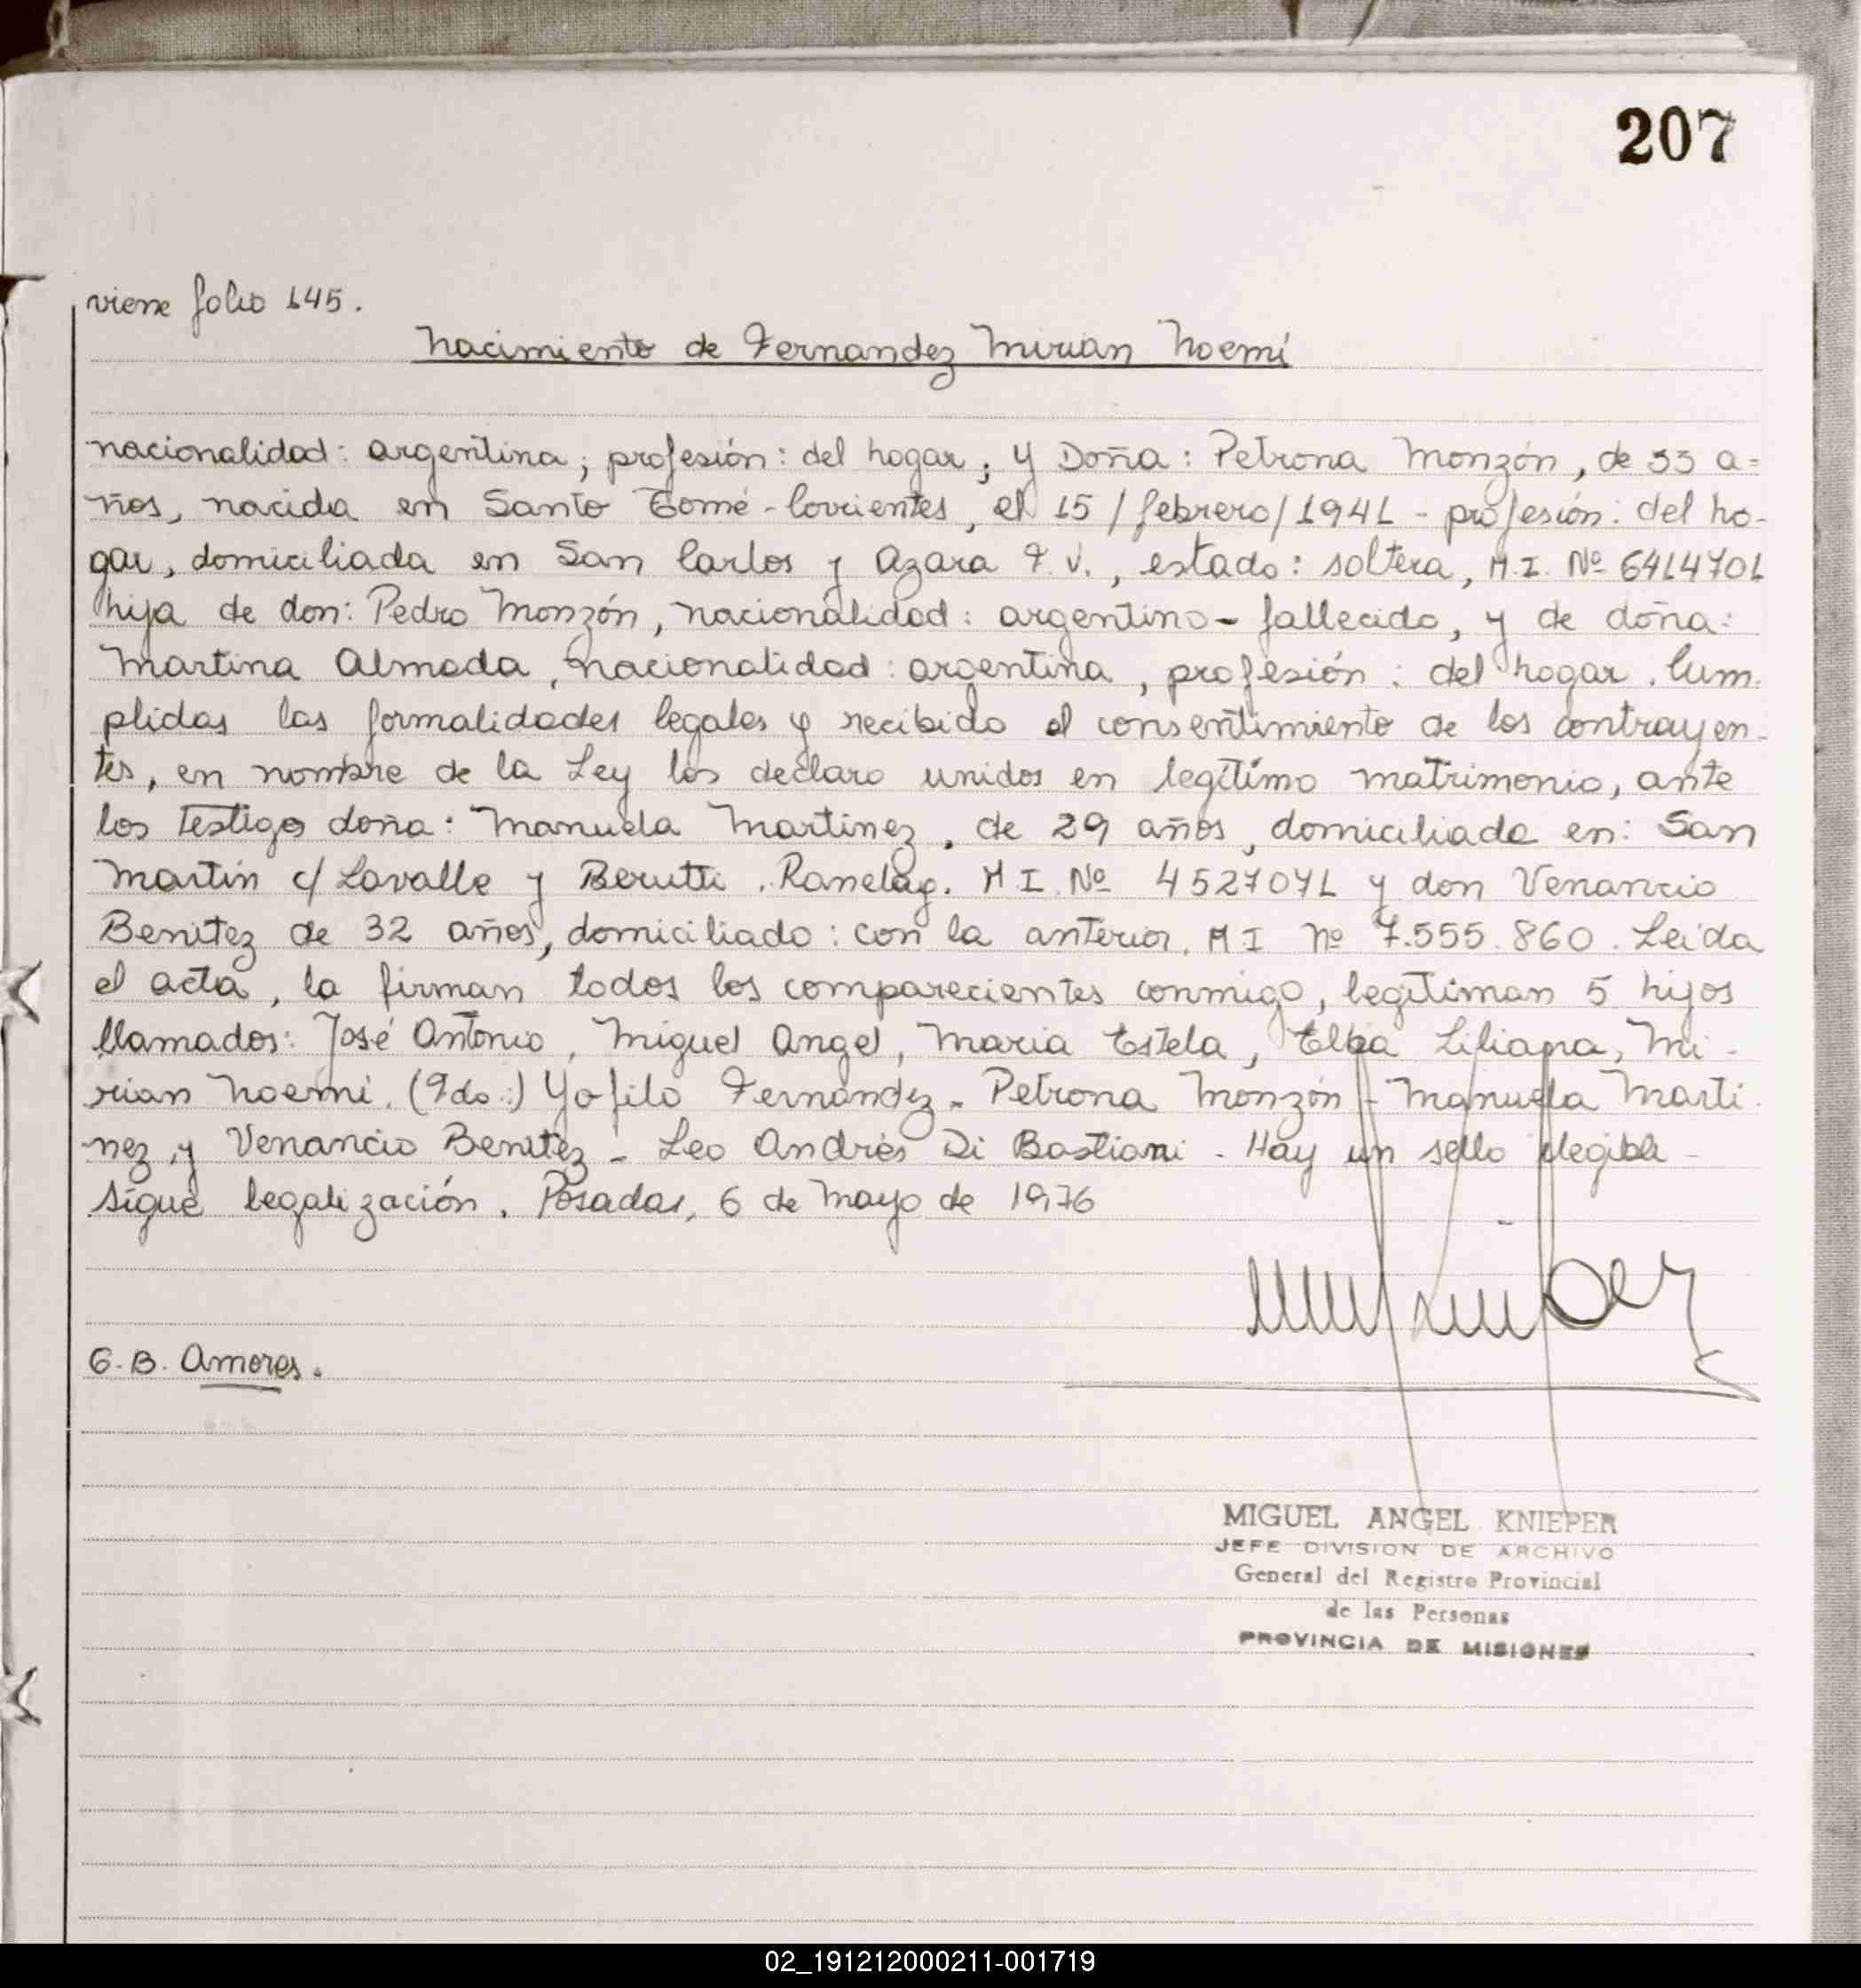 207
viene folio 145.
Nacimiento de Fernandez Mirian Noemí
nacionalidad: argentina; profesión: del hogar; y Doña: Petrona Monzón, de 33 a=
ños, nacida en Santo Tomé - Corrientes, el 15/febrero/1941 - profesión: del ho-
gar, domiciliada en San Carlos y Azara F.V., estado: soltera, M.I. Nº 6414701
hija de don: Pedro Monzón, nacionalidad: argentino - fallecido, y de doña:
Martina Almada, nacionalidad: argentina, profesión: del hogar. Cum-
plidas las formalidades legales y recibido el consentimiento de los contrayen-
tes, en nombre de la Ley los declaro unidos en legítimo matrimonio, ante
los testigos doña: Manuela Martinez, de 29 años, domiciliada en: San
Martín c/ Lavalle y Berutti. Ranelag. M.I. Nº 4527071 y don Venancio
Benitez de 32 años, domiciliado: con la anterior. M I Nº 7.555.860. Leída
el acta, la firman todos los comparecientes conmigo, legitiman 5 hijos
llamados: José Antonio, Miguel Angel, Maria Estela, Elba Liliana, Mi-
rian Noemi. (Fdo:) Yofilo Fernández - Petrona Monzón - Manuela Marti
nez y Venancio Benitez - Leo Andrés Di Bastiani - Hay un sello ilegible -
sigue legalización. Posadas, 6 de Mayo de 1976
G.B. Amores.
MIGUEL ANGEL KNIEPER
JEFE DIVISION DE ARCHIVO
General del Registro Provincial
de las Personas
PROVINCIA DE MISIONES
02_191212000211-001719